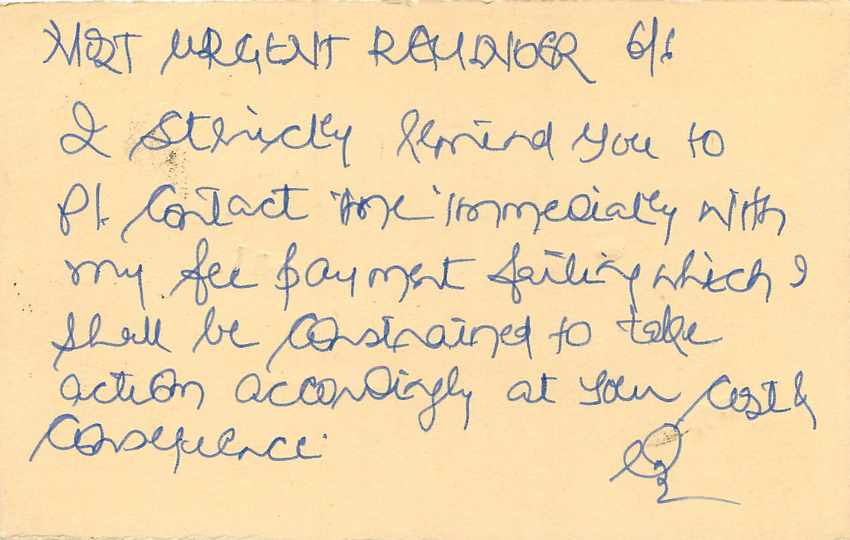 MOST URGENT REMINDER 6/6
I Strictly Remind you to
Pl. Contact 'me' immediatly with
my fee payment failing which I
shall be constrained to take
action accordingly at your cost &
Consequence.